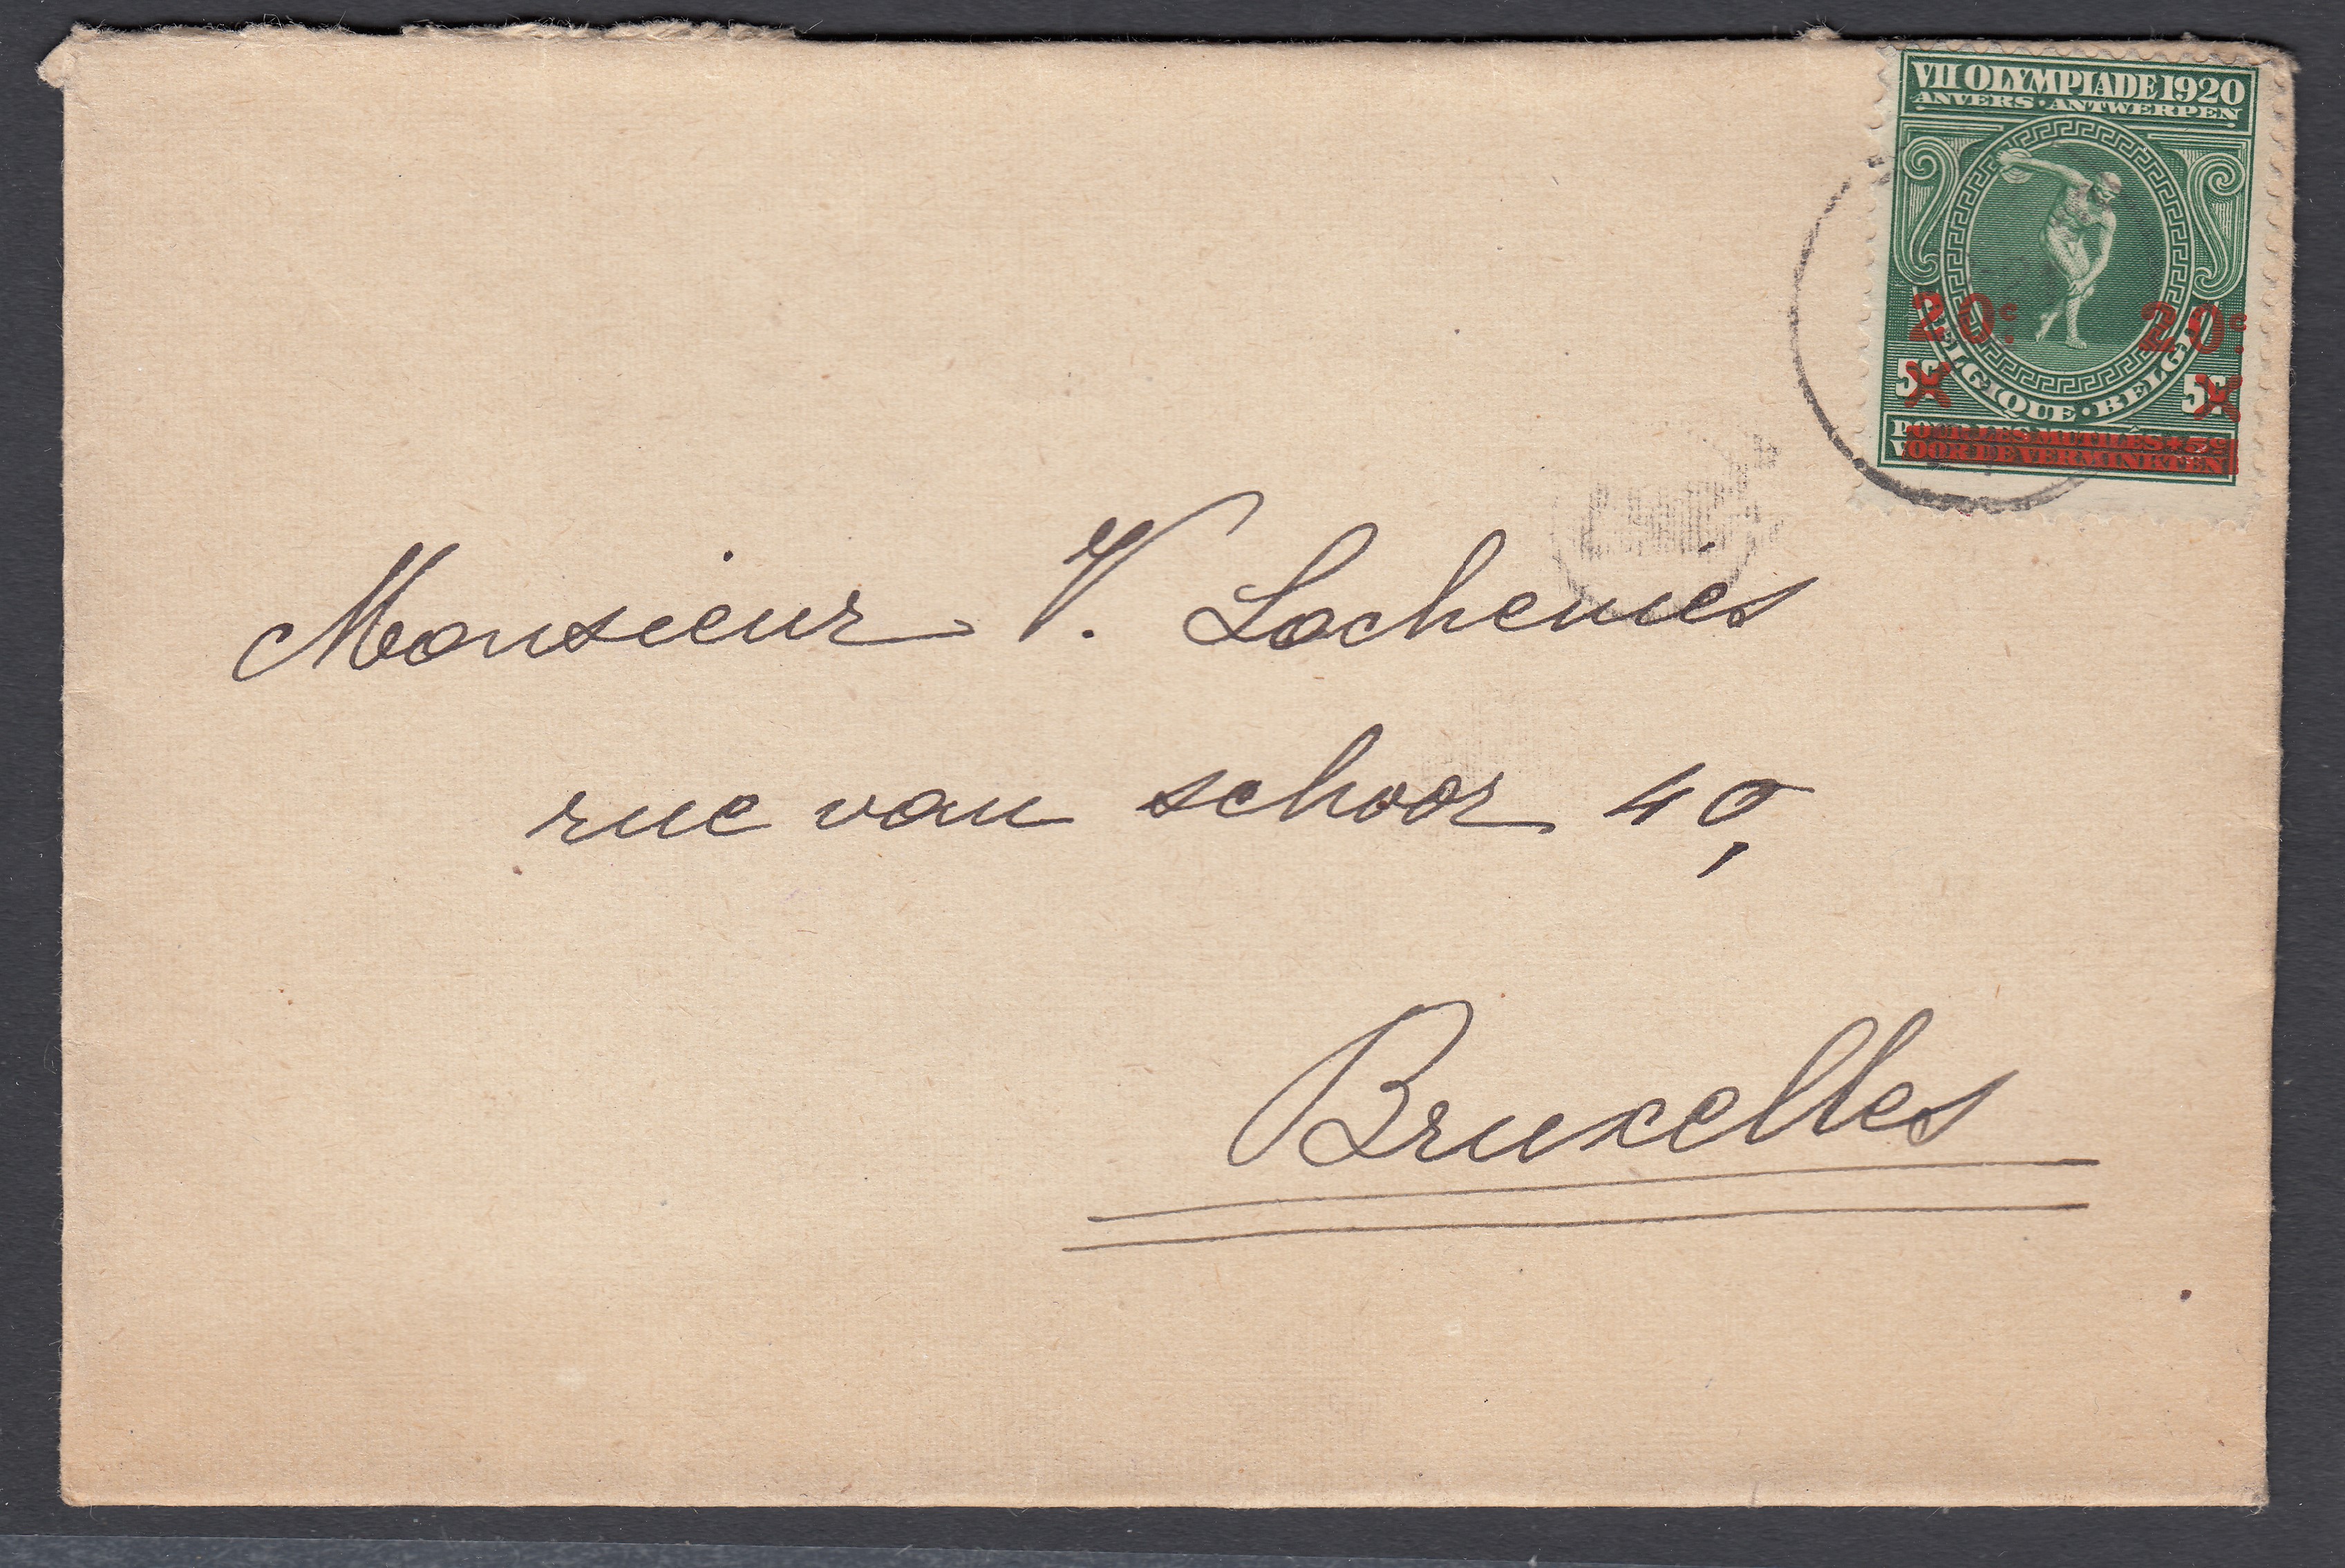 VII OLYMPIADE 1920
ANVERS · ANTWERPEN
20c. 20c.
5c 5c
BELGIQUE · BELGIË
POUR LES MUTILÉS + 5c
VOOR DE VERMINKTEN
Monsieur V. Lochemes
rue van schoor 40,
Bruxelles